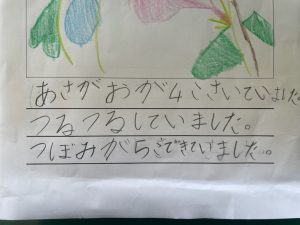 あさがおが4こさいていました。
つるつるしていました。
つぼみが5こできていました。